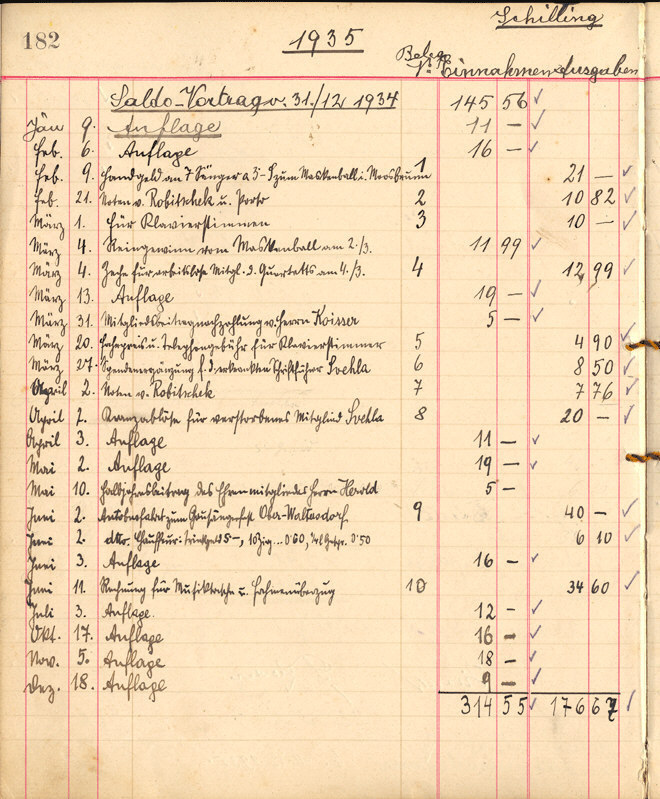 182
Schilling
1935
Beleg Nr. Einnahmen Ausgaben
Saldo-Vortrag v. 31./12 1934 145 56 ✓
Jän 9. Auflage 11 — ✓
Feb. 6. Auflage 16 — ✓
Feb. 9. Handgeld an 7 Sänger a 3- S zum Maskenball i. Moosbrunn 1 21 — ✓
Feb. 21. Noten v. Robitschek u. Porto 2 10 82 ✓
März 1. für Klavierstimmen 3 10 — ✓
März 4. Reingewinn vom Maskenball am 2./3. 11 99 ✓
März 4. Zeche für arbeitslose Mitgl. d. Quartetts am 4./3. 4 12 99 ✓
März 13. Auflage 19 — ✓
März 31. Mitgliedsbeitragnachzahlung v. Herrn Koisser 5 — ✓
März 20. Fahrpreis u. Telephongebühr für Klavierstimmer 5 4 90 ✓
März 27. f. d. erkrankten Schriftführer Svehla 6 8 50 ✓
April 2. Noten v. Robitschek 7 7 76 ✓
April 2. Kranzablöse für verstorbenes Mitglied Svehla 8 20 — ✓
April 3. Auflage 11 — ✓
Mai 2. Auflage 19 — ✓
Mai 10. Halbjahresbeitrag des Ehrenmitgliedes Herrn Herold 5 —
Juni 2. Autobusfahrt zum Gausängerfest Ober-Waltersdorf 9 40 — ✓
Juni 2. dtto. Chauffeur: Trinkgeld 5-, 10 Zig. .. 0'60, 0'50 6 10 ✓
Juni 3. Auflage 16 — ✓
Juni 11. Rechnung für Musiktasche u. Fahnenüberzug 10 34 60 ✓
Juli 3. Auflage. 12 — ✓
Okt. 17. Auflage 16 — ✓
Nov. 5. Auflage 18 — ✓
Dez. 18. Auflage 9 — ✓
314 55 ✓ 176 67 ✓